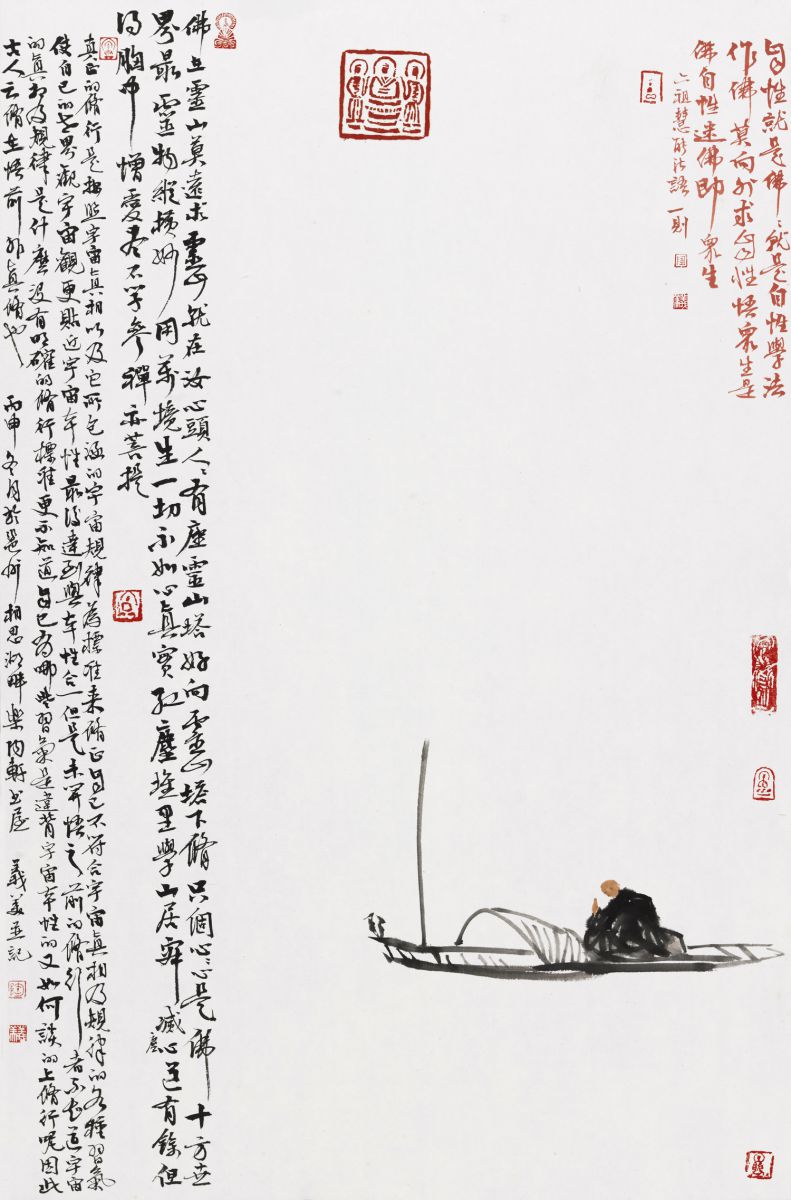 自性就是佛〻就是自性學法
作佛莫向外求自性悟衆生是
佛自性迷佛即衆生
六祖慧能法語一則
佛在靈山莫遠求靈山就在汝心頭人〻有座靈山塔好向靈山塔下脩只個心〻心是佛十方世
界最靈物縱横妙用萬境生一切不如心真實紅塵堆里學山居寂滅塵心道有餘但
得胸中憎愛尽不學參禪亦菩提
真正的脩行是按照宇宙真相以及它所包涵的宇宙規律為標准来脩正自己不符合宇宙真相及規律的各種習氣
使自己的世界觀宇宙觀更貼近宇宙本性最後達到與本性合一但是未開悟之前的脩行者不知道宇宙
的真相及規律是什麽没有明確的脩行標准更不知道自己有哪些習氣是違背宇宙本性的又如何談的上脩行呢因此
古人云脩在悟前非真脩也 丙申冬月於邕州相思湖畔樂陶軒书屋 義美並記